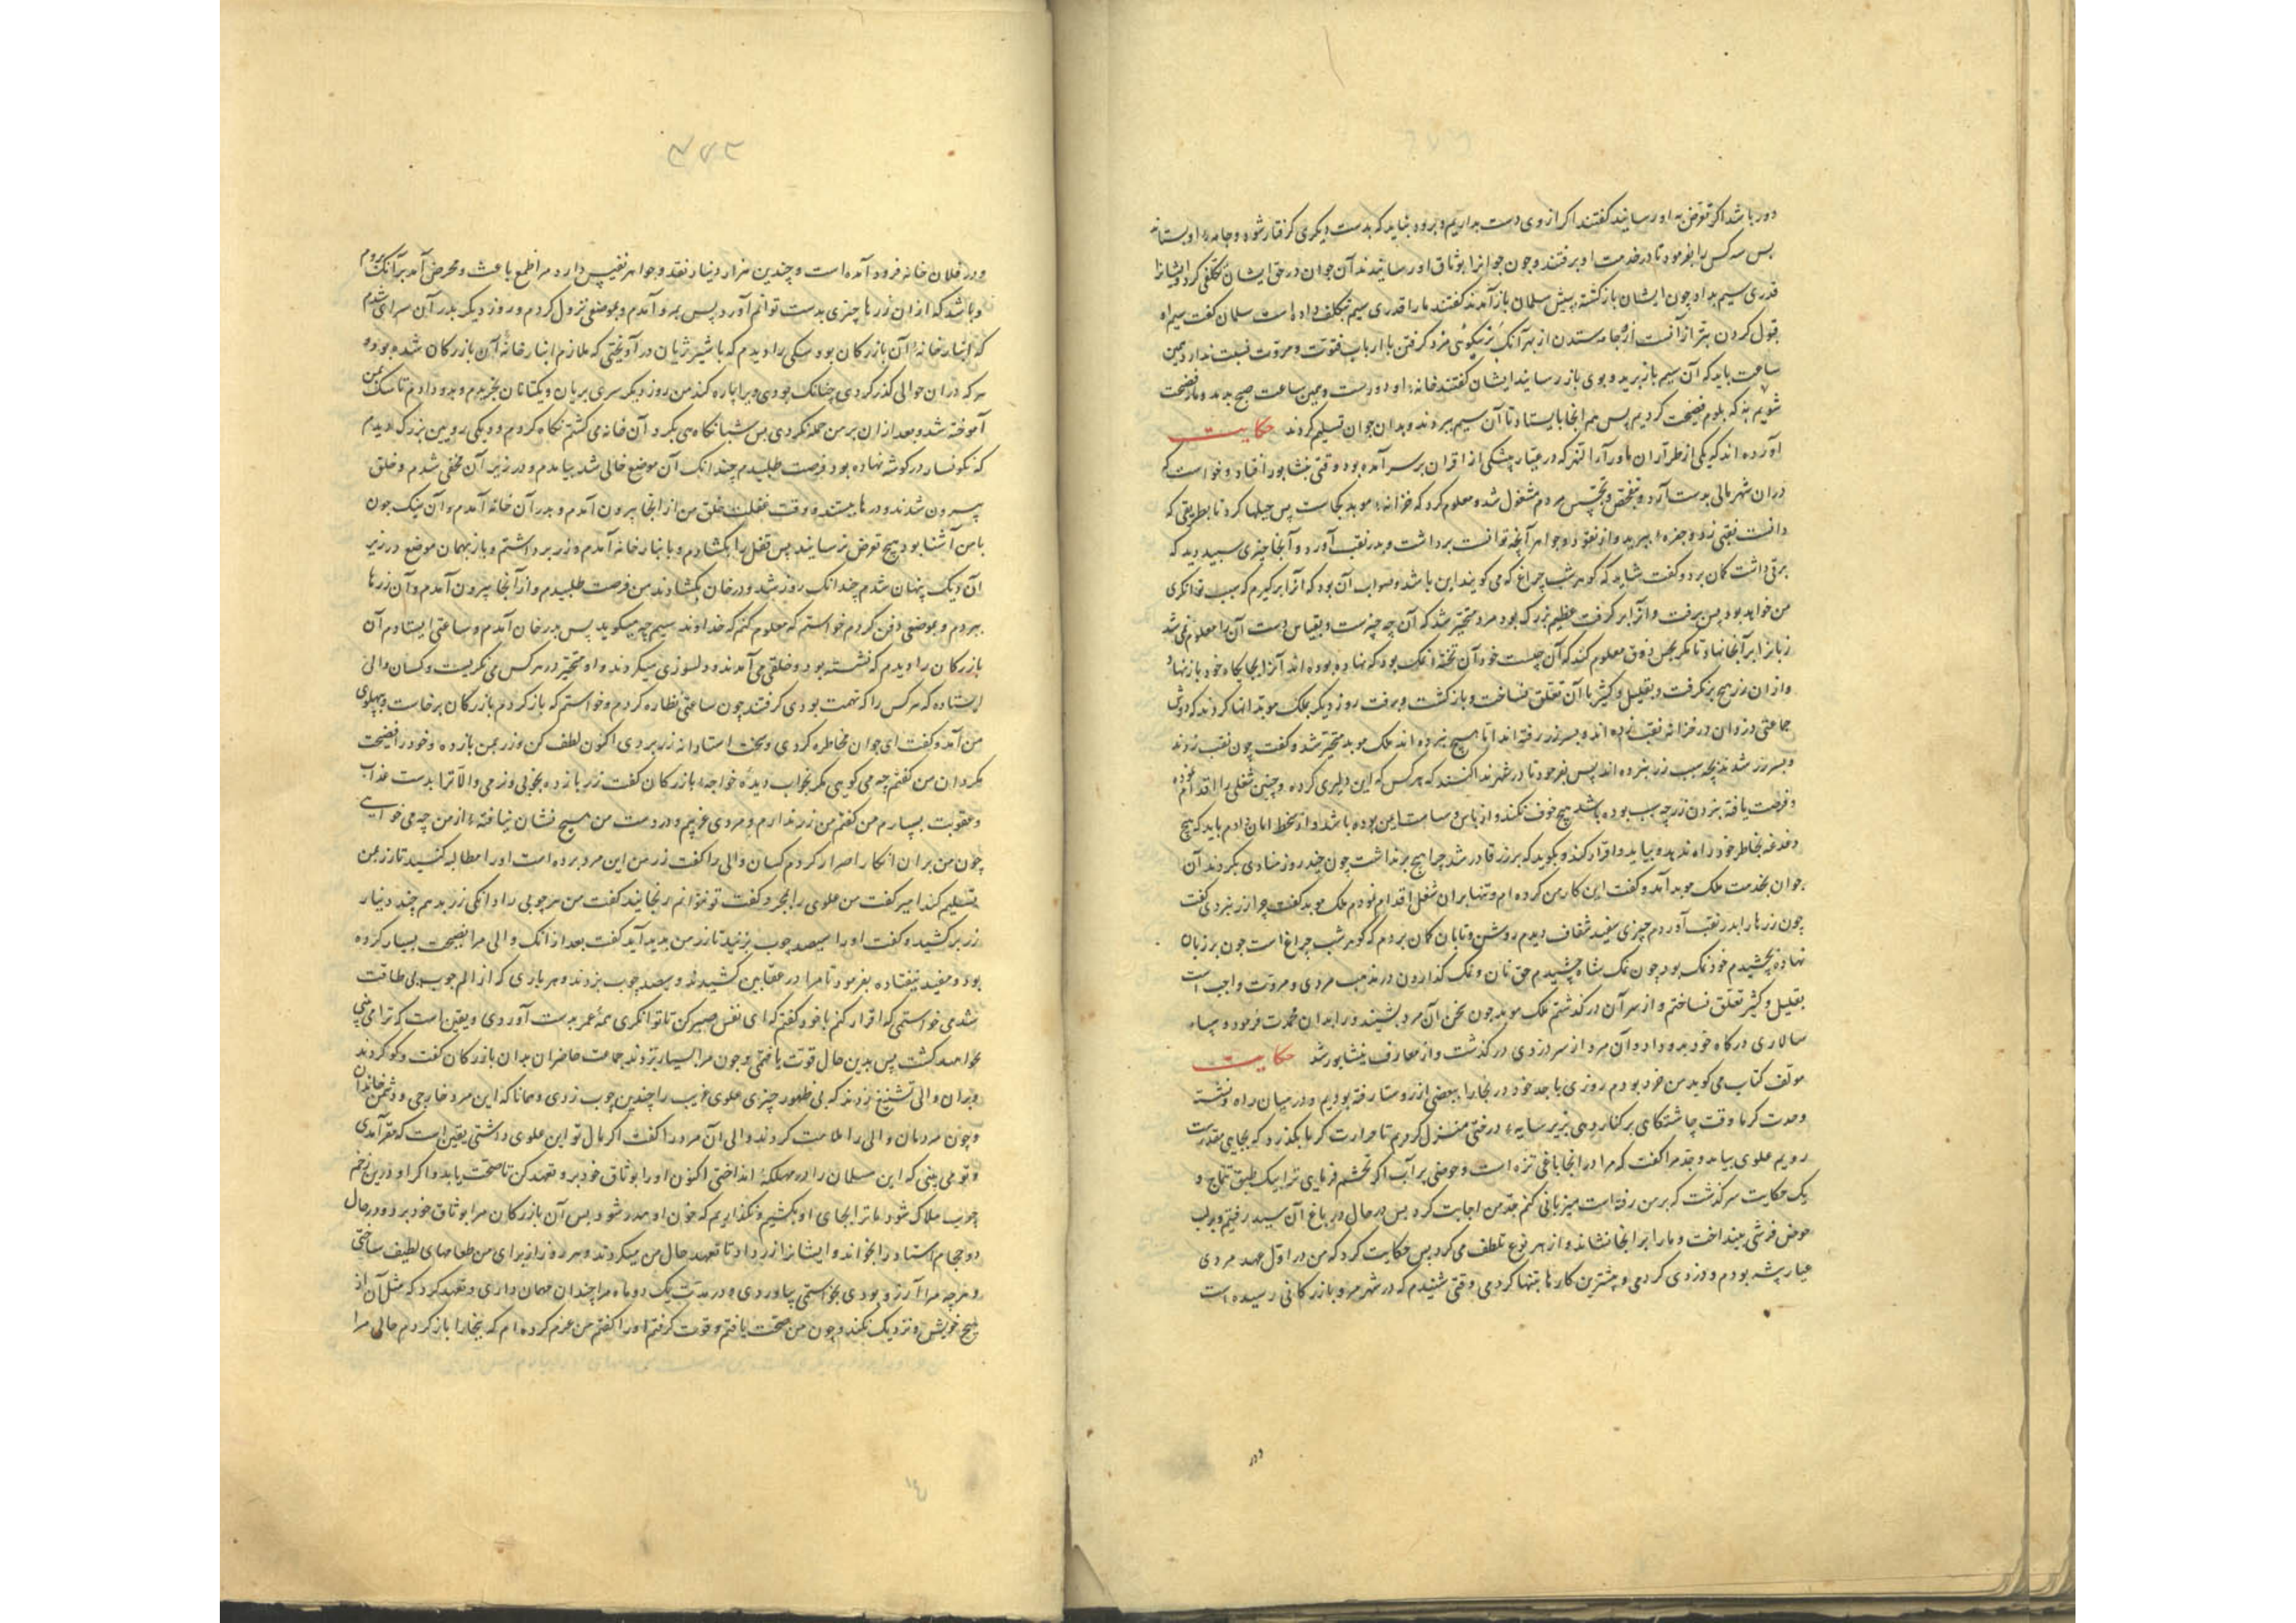 دور باشد اکر تعرّض به او رسانند گفتند اکر از وی دست بداریم و برود نباید که بدست دیکری کرفتار شود و جامهٔ او بستاند
پس سه کس را بفرمود تا در خدمت او برفتند و چون جوانرا بوثاق او رسانیدند آن جوان در حق ایشان تکلفی کرد و ایشانرا
قدری سیم بداد چون ایشان بازکشته پیش سلمان باز آمدند گفتند ما را قدری سیم تکلف داده است سلمان گفت سیم او
قبول کردن بتر از آنست از جامه ستدن از بهر آنک بر نیکوئی مزد کرفتن با ارباب فتوّت و مروّت نسبت ندارد همین
ساعت باید که آن سیم باز برید و بوی باز رسانید ایشان گفتند خانهٔ او دورست و همین ساعت صبح بدمد و ما فضیحت
شویم به که بلوم فضیحت کردیم پس هم انجا بایستاد تا آن سیم ببردند و بدان جوان تسلیم کردند حکایت
آورده‌اند که یکی از طرّاران ماورآء النهر که در عیّار پیشکی از اقران بر سر آمده بود وقتی بنشابور افتاد و خواست که
دران شهر مالی بدست آرد و بتفحّص و تجسّس مردم مشغول شد و معلوم کرد که خزانهٔ موید کجاست پس حیلها کرد تا بطریقی که
دانست نقبی زد و حفره ببرید و از نقود و جواهر آنچه توانست برداشت و بدر نقب آورد و آنجا چیزی سپید دید که
برقی داشت کمان برد و گفت شاید که کوهر شب چراغ که می کویند این باشد و صواب آن بود که آنرا برکیرم که سبب توانکری
من خواهد بود پس برفت و آنرا برکرفت عظیم بزرک بود مرد متحیّر شد که آن چه چیزست و بقیاس دست آن را معلوم نمی شد
زبانرا بر آنجا نهاد تا مکر بحس ذوق معلوم کند که آن چیست خود آن تختهٔ نمک بود که نهاده بوده‌اند آنرا بجایکاه خود باز نهاد
و ازان زر هیچ برنکرفت و بقلیل و کثیر با آن تعلّق نساخت و بازکشت و برفت روز دیکر بملک موید انها کردند که دوش
جماعتی دزدان در خزانه نقب زده‌اند و بسر زر رفته‌اند اما هیچ نبرده‌اند ملک موید متحیّر شد و گفت چون نقب زدند
و بسر زر شدند بچه سبب زر نبرده‌اند پس بفرمود تا در شهر ندا کنند که هر کس که این دلیری کرده و چنین شغلی را اقدام نموده
و فرصت یافته نبردن زر چه سبب بوده باشد هیچ خوف نکند و از باس و سیاست ایمن بوده باشد و از سخط امان دادم باید که هیچ
دغدغه بخاطر خود راه ندهد و بیاید و اقرار کند و بکوید که بر زر قادر شد چرا هیچ برنداشت چون چند روز منادی بکردند آن
جوان بخدمت ملک موید آمد و گفت این کار من کرده‌ام و تنها بران شغل اقدام نمودم ملک موید گفت چرا زر نبردی گفت
چون زرها را بدر نقب آوردم چیزی سفید شفاف دیدم روشن و تابان کمان بردم که کوهر شب چراغ است چون بر زبان
نهاده بچشیدم خود نمک بود چون نمک شاه چشیدم حق نان و نمک کذاردن در مذهب مردی و مروّت واجب است
بقلیل و کثیر تعلّق نساختم و از سر آن درکذشتم ملک موید چون سخن آن مرد بشنید و را بدان محمدت فرمود و سپاه
سالاری درکاه خود بدو داد و آن مرد از سر دزدی درکذشت و از معارف نیشابور شد حکایت
مولف کتاب می کوید من خرد بودم روزی با جد خود در بخارا ببعضی از روستا رفته بودیم و در میان راه نشسته
و حدت کرما وقت چاشتکاهی بر کنار دهی بزیر سایهٔ درختی منزل کردیم تا حرارت کرما بکذرد که بجایی مقدرست
رویم علوی بیامد و جدّ مرا گفت که مرا در اینجا باغی نزه است و حوضی پر آب اکر تجشّم فرمایی ترا بیک طبق تتماج و
یک حکایت سرکذشت که بر من رفته است میزبانی کنم جدّ من اجابت کرد پس در حال در باغ آن سید رفتیم و بر لب
حوض فرشی بینداخت و ما را بر انجا نشاند و از هر نوع تلطف می کرد پس حکایت کرد که من در اوّل عهد مردی
عیار پیشه بودم و دزدی کردمی و بیشترین کارها بتنها کردمی وقتی شنیدم که در شهر مرو بازرکانی رسیده است
در
و در فلان خانه فرود آمده است و چندین هزار دینار نقد و جواهر نفیس دارد مرا طمع باعث و محرض آمد بر آنک بروم
و باشد که از ان زرها چیزی بدست توانم آورد پس بمرو آمدم و بموضعی نزول کردم و روز دیکر بدر آن سرای شدم
که انبارخانهٔ آن بازرکان بود سکی را دیدم که با شیر ژیان درآویختی که ملازم انبارخانهٔ آن بازرکان شده بود و
هر که دران حوالی کذر کردی چنانک بودی ویرا پاره کند من روز دیکر سری بریان و یکتا نان بخریدم و بدو دادم تا سک بمن
آموخته شد و بعد ازان بر من حمله نکردی پس شبانکاهی بکرد آن خانه می کشتم نکاه کردم و دیکی رویین بزرک دیدم
که نکونسار در کوشه نهاده بود فرصت طلبیدم چندانک آن موضع خالی شد بیامدم و در زیر آن مخفی شدم و خلق
بیرون شدند و درها ببستند و وقت غفلت خلق من از انجا بیرون آمدم و بدر آن خانه آمدم و آن سک چون
با من آشنا بود هیچ تعرض نرسانید پس قفل را بکشادم و بانبارخانه آمدم و زر برداشتم و باز بهمان موضع در زیر
آن دیک پنهان شدم چندانک روز شد و در خان بکشادند من فرصت طلبیدم و از آنجا بیرون آمدم و آن زرها
ببردم و بموضعی دفن کردم خواستم که معلوم کنم که خداوند سیم چه میکوید پس بدر خان آمدم و ساعتی ایستادم آن
بازرکان را دیدم که نشسته بود و خلقی می آمدند و دلسوزی میکردند و او متحیّر در هر کس می نکریست و کسان والی
ایستاده که هر کس را که تهمت بودی کرفتند چون ساعتی نظاره کردم و خواستم که باز کردم بازرکان برخاست و بپهلوی
من آمد و گفت ای جوان مخاطره کردی و سخت استادانه زر بردی اکنون لطف کن و زر بمن بازده و خود را فضیحت
مکردان من گفتم چه می کویی مکر بخواب دیدهٔ خواجه بازرکان گفت زر بازده بخوبی و نرمی و الّا ترا بدست عذاب
و عقوبت بسپارم من گفتم من زر ندارم و مردی غریبم و در دست من هیچ نشان نیافتهٔ از من چه می خواهی
چون من بران انکار اصرار کردم کسان والی را گفت زر من این مرد برده است اورا مطالبه کنید تا زر بمن
تسلیم کند امیر گفت من علوی را بمجرد گفت تو نتوانم رنجانید گفت من هر چوبی را دانکی زر بدهم چند دینار
زر برکشید و گفت اورا سیصد چوب بزنید تا زر من پدید آید گفت بعد از انک والی مرا نصیحت بسیار کرده
بود و مفید نیفتاده بفرمود تا مرا در عقابین کشیدند و سیصد چوب بزدند و هر باری که از الم چوب بی طاقت
شدمی خواستمی که اقرار کنم با خود گفتم که ای نفس صبر کن تا توانکری همهٔ عمر بدست آوردی و یقین است که ترا می
خواهند کشت پس بدین حال قوت یافتمی و چون مرا بسیار بزدند جماعت حاضران بدان بازرکان گفت و کو کردند
و بران والی تشنیع زدند که بی ظهور چیزی علوی غریب را چندین چوب زدی و همانا که این مرد خارجی و دشمن خاندان
و چون مردمان والی را ملامت کردند والی آن مرد را گفت اکر مال تو این علوی داشتی یقین است که مقر آمدی
و تو می بینی که این مسلمان را در مهلکهٔ انداختی اکنون او را بوثاق خود بر و تعهد کن تا صحّت یابد و اکر او درین زخم
چوب هلاک شود ما ترا بجای او بکشیم و نکذاریم که خون او هدر شود پس آن بازرکان مرا بوثاق خود برد و در حال
دو حجام استاد را بخواند و ایشانرا زر داد تا تعهد حال من میکردند و هر روز از برای من طعامهای لطیف ساختی
و هرچه مرا آرزو بودی بخواستمی بیاوردی و در مدّت یک دو ماه مرا چندان مهمان داری و تعهد کرد که مثل آن از
هیچ خویش و نزدیک نکند و چون من صحّت یافتم و قوت کرفتم اورا گفتم من عزم کرده‌ام که ببخارا باز کردم حالی مرا